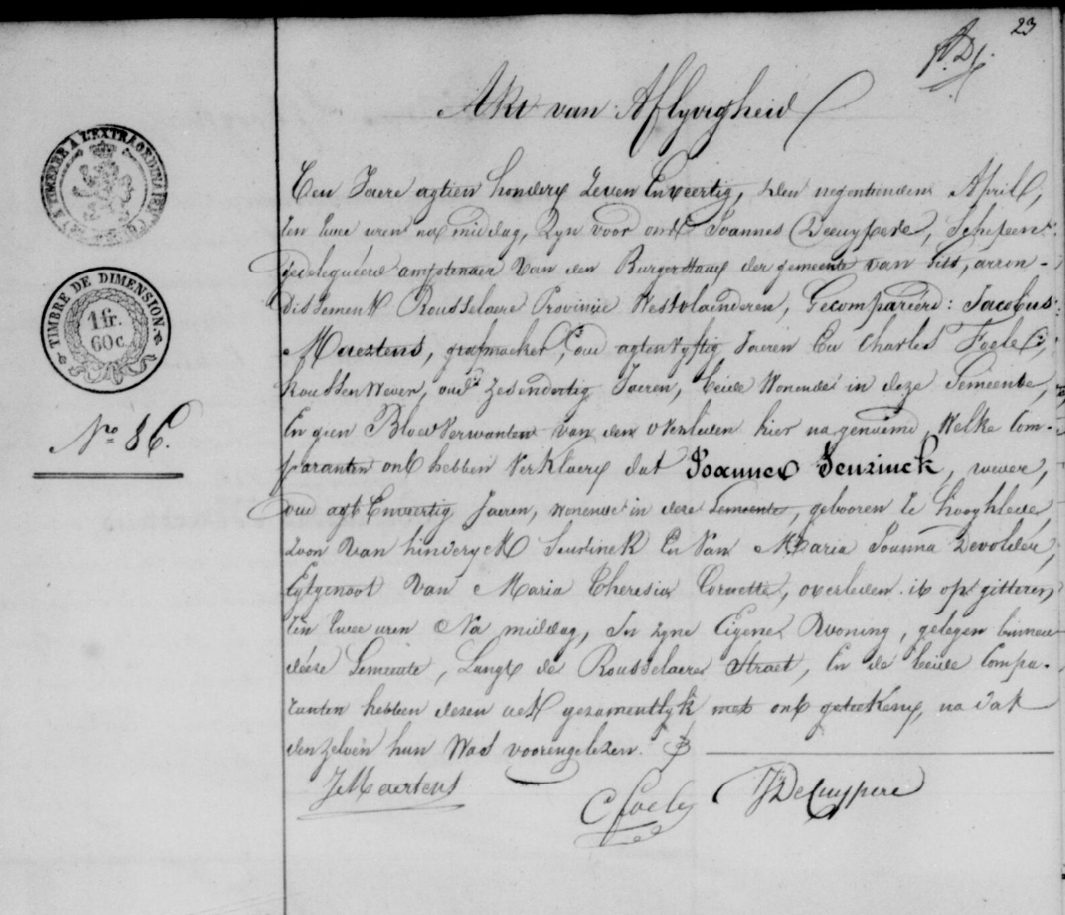 23
Akt van Aflyvigheid
TIMBRE A L'EXTRAORDINAIRE
TIMBRE DE DIMENSION
1 fr.
60 c.
No 86.
Ten Jaere agtien honderd zeven en veertig, den negentienden April,
ten twee uren na middag, zyn voor ons Joannes Decuypere, Schepen
gedelegueerd amptenaer van den Burgerstand der gemeente van Gits, arron-
dissement Rousselaere Provincie Westvlaenderen, Gecompareerd: Jacobus
Maertens, grafmaeker, oud agtenvyftig Jaeren En Charles
Koussen Wever, oud zesendertig Jaeren, beide Wonende in deze Gemeente,
En geen Bloedverwanten van den overleden hier nagenoemd, Welke Com-
paranten ons hebben Verklaerd dat Joannes, wever,
oud agt Enveertig Jaeren, wonende in deze Gemeente, gebooren te hooghlede,
zoon van hinderyck En Van Maria Joanna Devolder,
Egtgenoot Van Maria Theresia, overleden is op gisteren,
ten twee uren Na middag, In zyne Eigene Wooning, gelegen binnen
deeze Gemeente, Langs de Rousselaere Straet, En de beide Compa-
ranten hebben dezen act gezamentlyk met ons geteekend, na dat
den zelven hun Was voorengelezen.
J Maertens
J DeCuypere